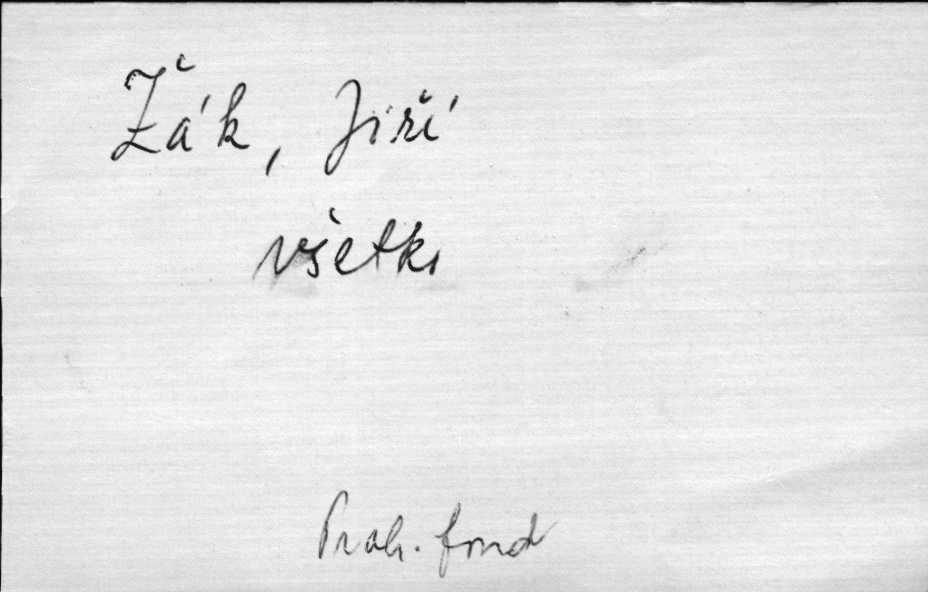 Žák, Jiří
všetko
fond